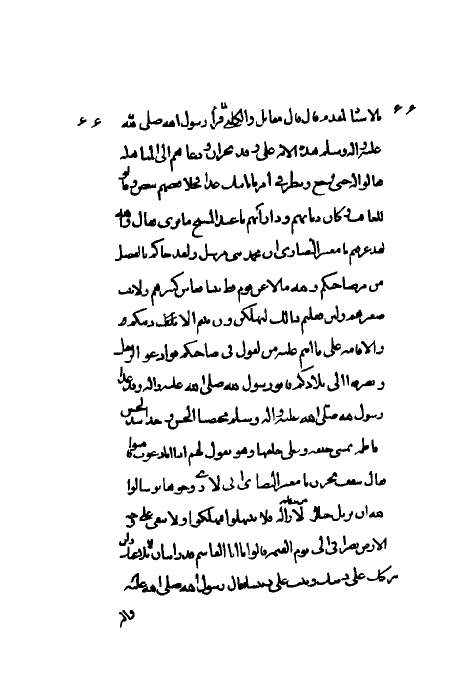 بالاسناد المقدم قال قال مقاتل والكلبي لما قرأ رسول الله صلى الله
عليه واله وسلم هذه الاية على وفد نجران ودعاهم الى المباهلة
قالوا له حتى نرجع وننظر في امرنا ونأتيك غدا فخلا بعضهم ببعض وقالوا
للعاقب وكان ديانهم وذا رأيهم يا عبد المسيح ما ترى فقال والله
لقد عرفتم يا معشر النصارى ان محمد نبي مرسل ولقد جاءكم بالفصل
من امر صاحبكم والله ما لاعن قوم قط نبيا فعاش كبيرهم ولا نبت
صغيرهم ولئن فعلتم ذلك لتهلكن وان ابيتم الا تلف دينكم
والاقامة على ما انتم عليه من القول في صاحبكم فوادعوا الرجل
وانصرفوا الى بلادكم فاتوا رسول الله صلى الله عليه واله وقد غدا
رسول الله صلى الله عليه واله وسلم محتضنا الحسين واخذ بيد الحسن
وفاطمة تمشي خلفه وعلي خلفها وهو يقول لهم اذا انا دعوت فامنوا
فقال اسقف نجران يا معشر النصارى اني لارى وجوها لو سالوا
الله ان يزيل جبلا من مكانه لازاله فلا تبتهلوا فتهلكوا ولا يبقى على وجه
الارض نصراني الى يوم القيمة فقالوا يا ابا القاسم قد راينا ان لا نلاعنك وان
نتركك على دينك ونثبت على ديننا فقال رسول الله صلى الله عليه
واله